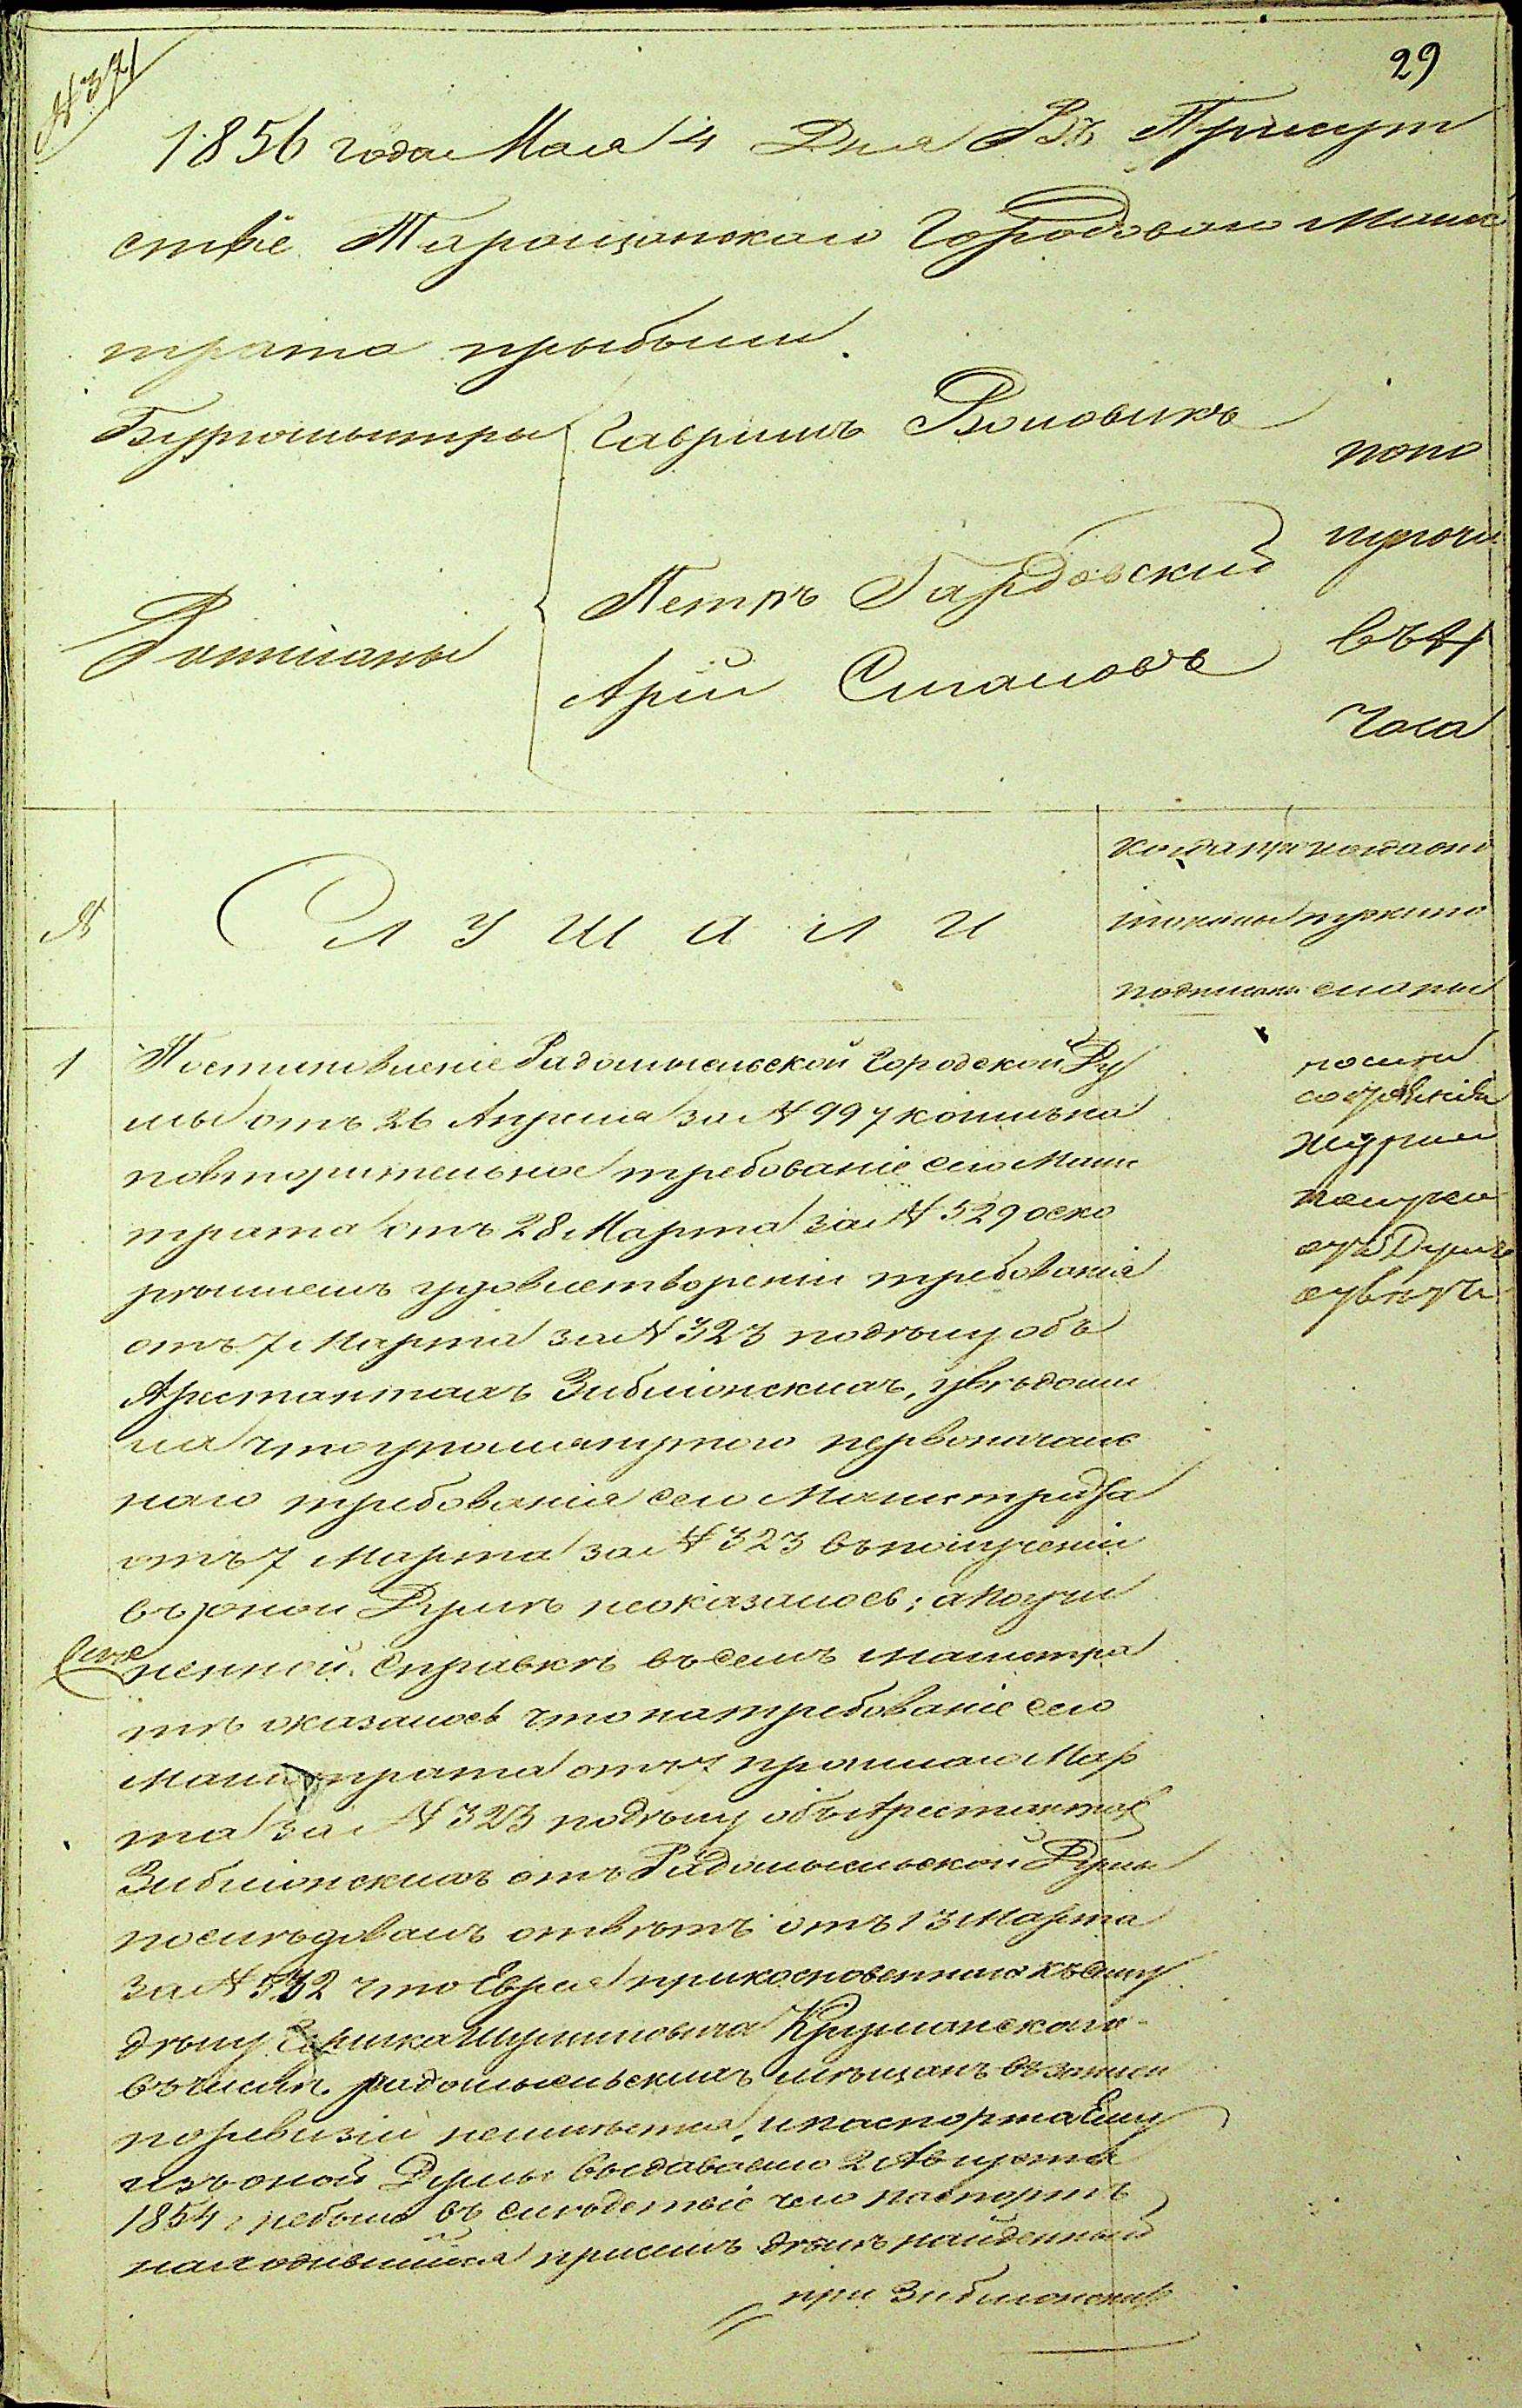 № 37
29
1856 года Мая 4 Дня Въ Присут
ствіе Таращанскаго Городоваго Магис
трата прыбыли
Бургомыстры Гаврилъ Воловикъ
попо
Петръ Гардовский
Ратманы
Арій Слановъ
въ 4
часа
№
Слушали
когда про когда от
подписаны сланы
1
Постановленіе Радомысльской Городской Ду
мы отъ 26 Апреля за № 997 коимъ на
повторительное требованіе сего Магис
трата отъ 28 Марта за № 529 о ско
рѣйшемъ удовлетвореніи требованія
отъ 7 Марта за № 323 по дѣлу объ
Арестантахъ Зиблюнскихъ, увѣдоми
ла что упомянутого первоначаль
наго требованія сего Магистрата
отъ 7 Марта за № 323 въ полученіи
въ оной Думѣ не оказалось; а по учи
ненной Справкѣ въ семъ Магистра
тѣ оказалось что на требованіе сего
Магистрата отъ 7 прошлаго Мар
та за № 323 по дѣлу объ Арестантах
Зиблюнскихъ отъ Радомысльской Думы
послѣдовалъ отвѣтъ отъ 13 Марта
за № 532 что Еврея прикосновеннаго къ сему
дѣлу Шулимовича Кризманского
въ числѣ радомысльскихъ мѣщанъ
по ревизіи неимѣется, и паспорта Ему
изъ оной Думы выдаваемо 2 Августа
1854 г небыло въ слѣдствіе чего паспортъ
находившійся при семъ дѣлѣ найденный
при Зиблюнских
журнал